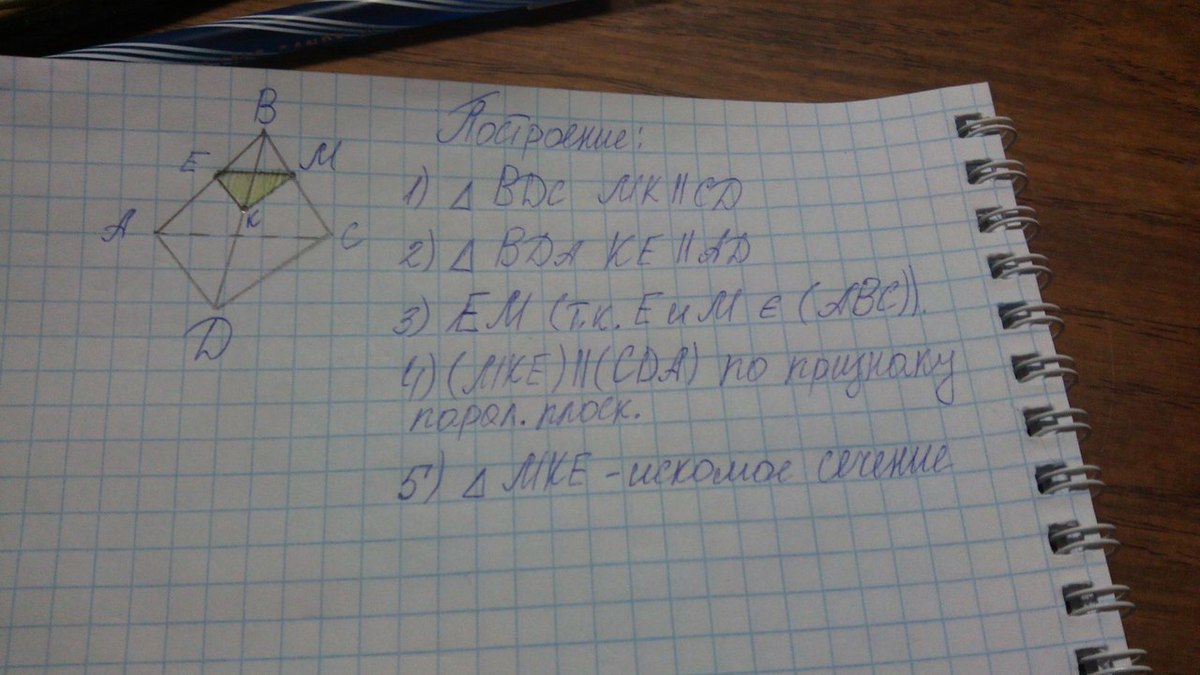 B
E
M
K
A
C
D
Построение:
1) △ BDC MK || CD
2) △ BDA KE || AD
3) EM (т.к. E и M ∈ (ABC)).
4) (MKE) || (CDA) по признаку
парал. плоск.
5) △ MKE - искомое сечение